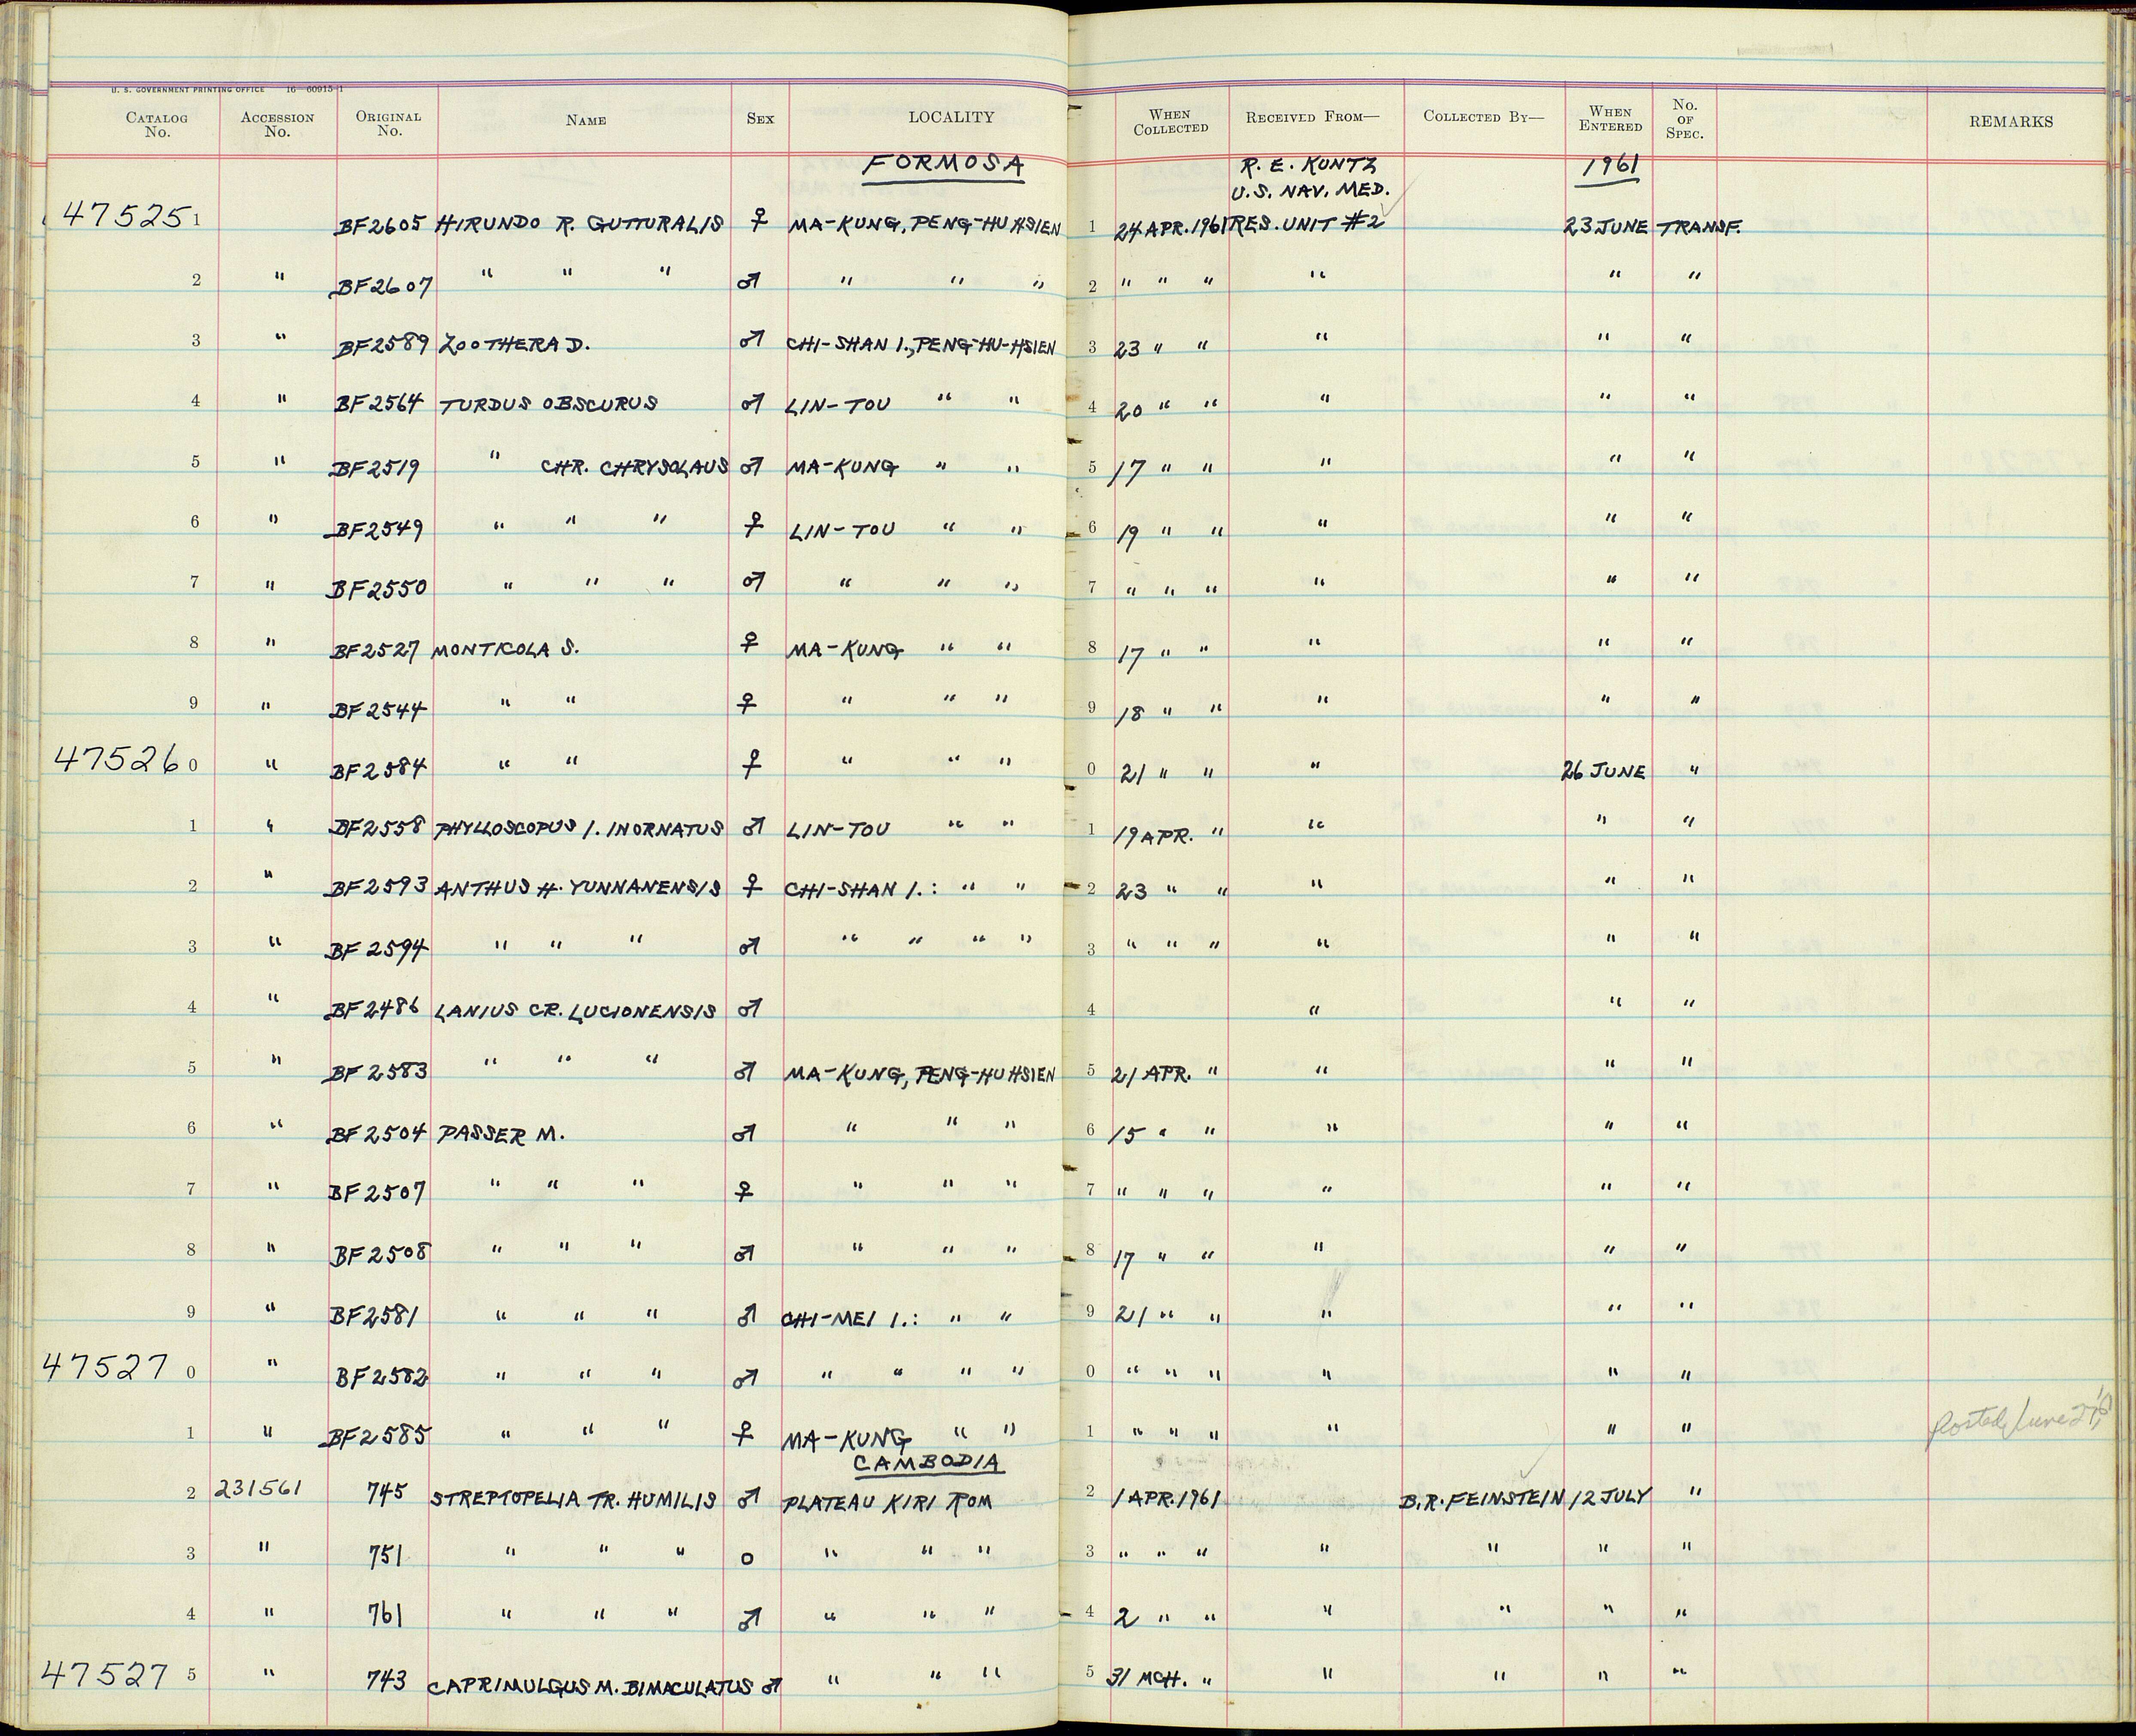 U. S. GOVERNMENT PRINTING OFFICE 16—60915-1
CATALOG No. ACCESSION No. ORIGINAL No. NAME SEX LOCALITY WHEN COLLECTED RECEIVED FROM— COLLECTED BY— WHEN ENTERED No. OF SPEC. REMARKS
FORMOSA R. E. KUNTZ 1961
U.S. NAV. MED.
47525 1 BF2605 HIRUNDO R. GUTTURALIS ♀ MA-KUNG, PENG-HU HSIEN 1 24 APR. 1961 RES. UNIT #2 23 JUNE TRANSF.
2 " BF2607 " " " ♂ " " " 2 " " " " " "
3 " BF2589 ZOOTHERA D. ♂ CHI-SHAN I., PENG-HU-HSIEN 3 23 " " " " "
4 " BF2564 TURDUS OBSCURUS ♂ LIN-TOU " " 4 20 " " " " "
5 " BF2519 " CHR. CHRYSOLAUS ♂ MA-KUNG " " 5 17 " " " " "
6 " BF2549 " " " ♀ LIN-TOU " " 6 19 " " " " "
7 " BF2550 " " " ♂ " " " 7 " " " " " "
8 " BF2527 MONTICOLA S. ♀ MA-KUNG " " 8 17 " " " " "
9 " BF2544 " " ♀ " " " 9 18 " " " " "
47526 0 " BF2584 " " ♀ " " " 0 21 " " " 26 JUNE "
1 " BF2558 PHYLLOSCOPUS I. INORNATUS ♂ LIN-TOU " " 1 19 APR. " " " "
2 " BF2593 ANTHUS H. YUNNANENSIS ♀ CHI-SHAN I.: " " 2 23 " " " " "
3 " BF2594 " " " ♂ " " " " 3 " " " " " "
4 " BF2486 LANIUS CR. LUCIONENSIS ♂ 4 " " "
5 " BF2583 " " " ♂ MA-KUNG, PENG-HU HSIEN 5 21 APR. " " " "
6 " BF2504 PASSER M. ♂ " " " 6 15 " " " " "
7 " BF2507 " " " ♀ " " " 7 " " " " " "
8 " BF2508 " " " ♂ " " " 8 17 " " " " "
9 " BF2581 " " " ♂ CHI-MEI I.: " " 9 21 " " " " "
47527 0 " BF2582 " " " ♂ " " " " 0 " " " " " "
1 " BF2585 " " " ♀ MA-KUNG " " 1 " " " " " " Posted June 27,
CAMBODIA
2 231561 745 STREPTOPELIA TR. HUMILIS ♂ PLATEAU KIRI ROM 2 1 APR. 1961 B.R. FEINSTEIN 12 JULY "
3 " 751 " " " o " " " 3 " " " " " " "
4 " 761 " " " ♂ " " " 4 2 " " " " " "
47527 5 " 743 CAPRIMULGUS M. BIMACULATUS ♂ " " " 5 31 MCH. " " " " "